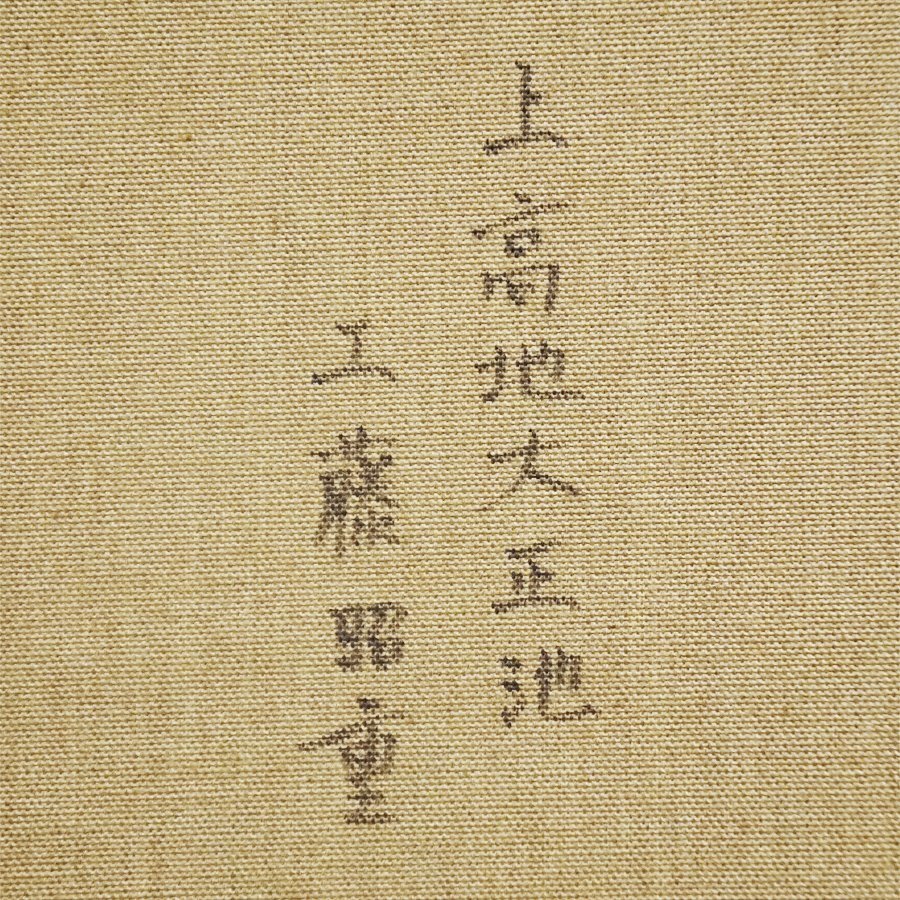 上高地大正池
工藤昭重